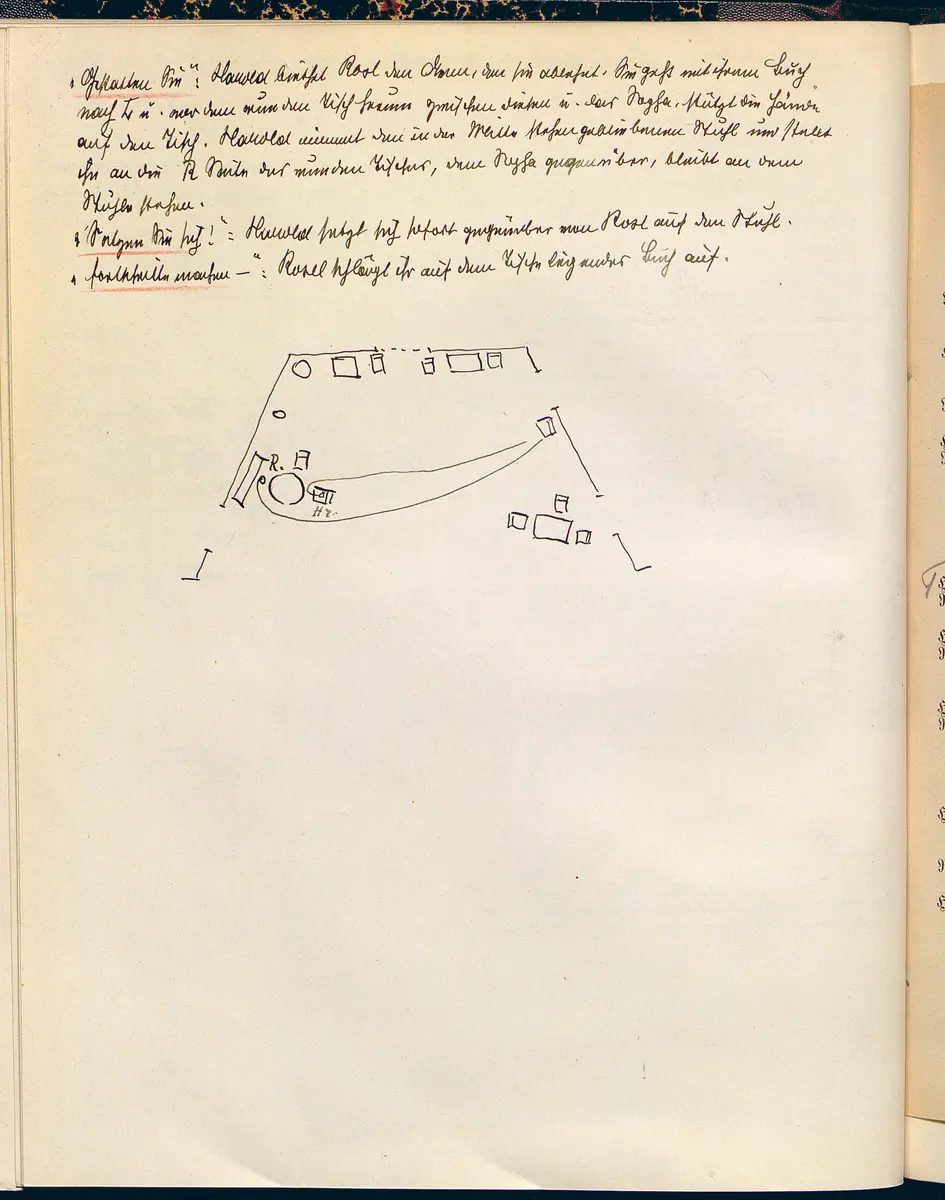 „Gestatten Sie“: Harold bietet Rosl den Arm, den sie ablehnt. Sie geht mit ihrem Buch
nach L u. vor dem runden Tisch herum zwischen diesen u. das Sopha, stützt die Hände
auf den Tisch. Harold nimmt den in der Mitte stehen gebliebenen Stuhl und stellt
ihn an die R Seite des runden Tisches, dem Sopha gegenüber, bleibt an dem
Stuhle stehen.
„Setzen Sie sich!“: Harold setzt sich sofort gegenüber von Rosl auf den Stuhl.
„fortschritte machen –“: Rosel schlägt ihr auf dem Tische liegendes Buch auf.
R.
Hr.